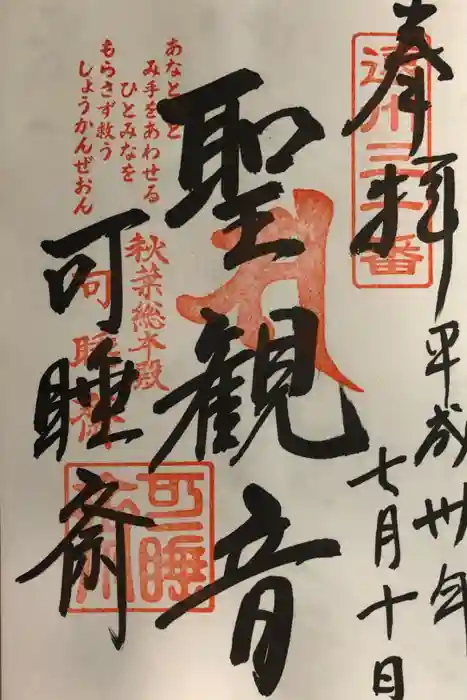 奉拝
遠州三十三番
平成卅年
七月十日
聖観音
あなとうと
み手をあわせる
ひとみなを
もらさず救う
しょうかんぜおん
秋葉総本殿
可睡斎
可睡斎